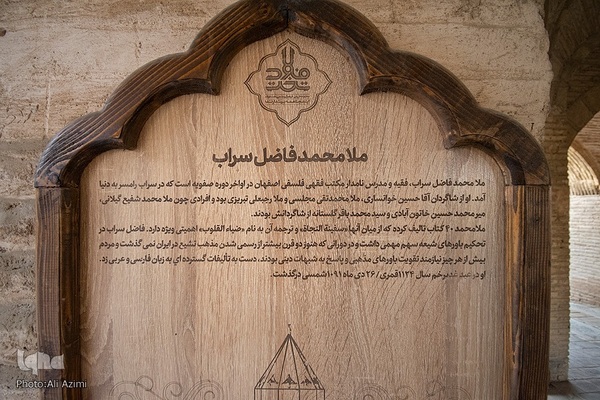 ملا محمد فاضل سراب
ملا محمد فاضل سراب، فقیه و مدرس نامدار مکتب فقهی فلسفی اصفهان در اواخر دوره صفویه است که در سراب رامسر به دنیا
آمد. او از شاگردان آقا حسین خوانساری، ملا محمدتقی مجلسی و ملا رجبعلی تبریزی بود و افرادی چون ملا محمد شفیع گیلانی،
میر محمد حسین خاتون آبادی و سید محمد باقر گلستانه از شاگردانش بودند.
ملا محمد ۴۰ کتاب تالیف کرده که از میان آنها «سفینة النجاة» و ترجمه آن به نام «ضیاء القلوب» اهمیتی ویژه دارد. فاضل سراب در
تحکیم باورهای شیعه سهم مهمی داشت و در دورانی که هنوز دو قرن بیشتر از رسمی شدن مذهب تشیع در ایران نمی گذشت و مردم
بیش از هر چیز نیازمند تقویت باورهای مذهبی و پاسخ به شبهات دینی بودند، دست به تألیفات گسترده ای به زبان فارسی و عربی زد.
او در عید غدیر خم سال ۱۱۲۴ قمری/ ۲۶ دی ماه ۱۰۹۱ شمسی درگذشت.
iqna
Photo:Ali Azimi